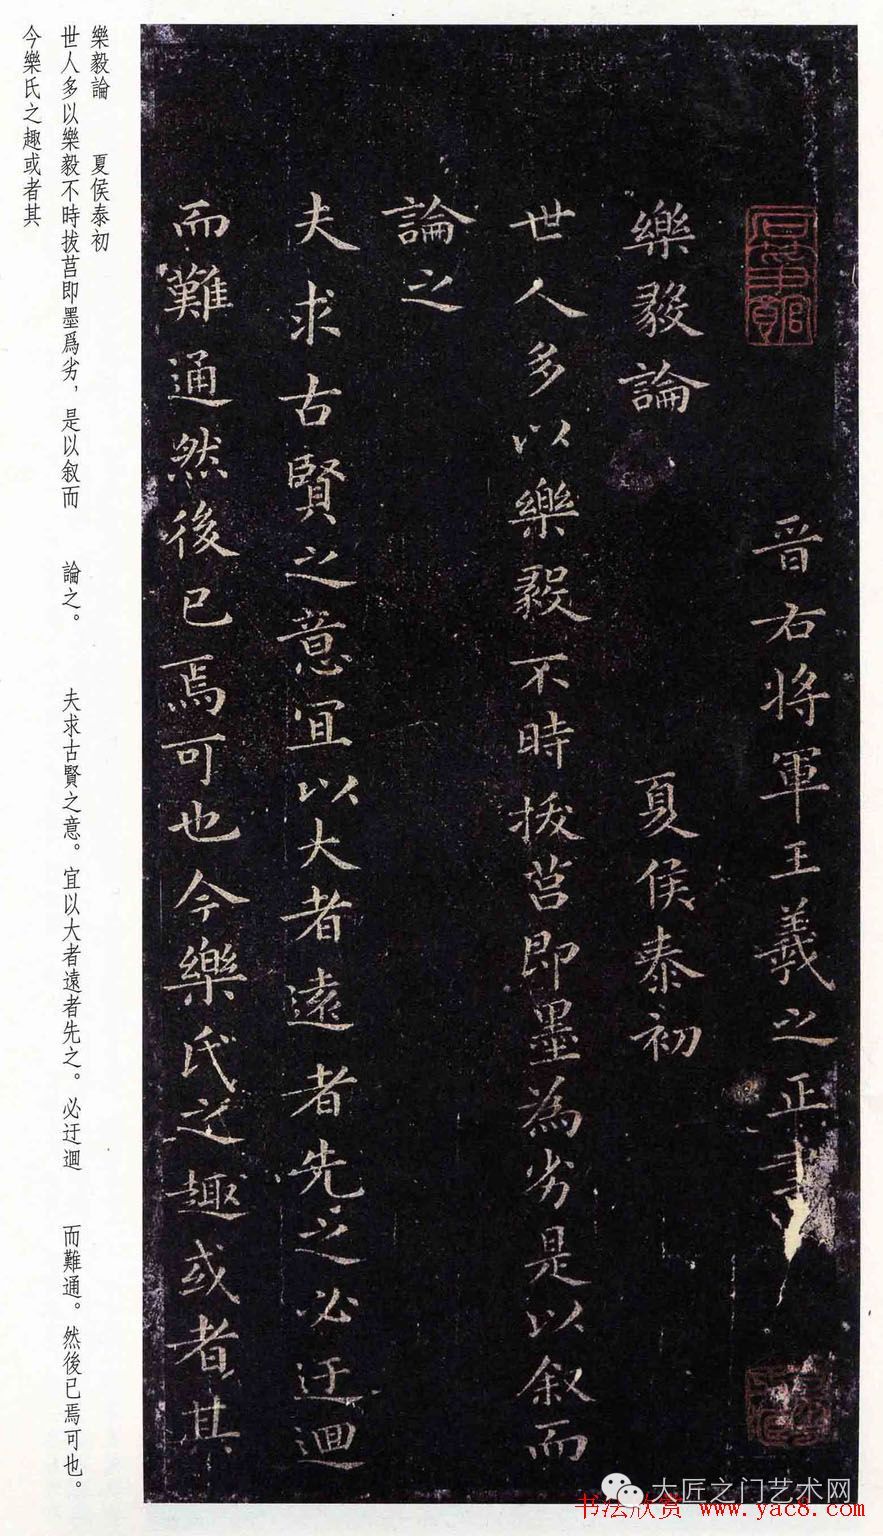 晉右将軍王羲之正書
樂毅論 夏侯泰初
世人多以樂毅不時拔莒即墨為劣是以叙而
論之
夫求古賢之意宜以大者遠者先之必迂迴
而難通然後已焉可也今樂氏之趣或者其
樂毅論 夏侯泰初
世人多以樂毅不時拔莒即墨爲劣，是以叙而 論之。 夫求古賢之意。宜以大者遠者先之。必迂迴 而難通。然後已焉可也。
今樂氏之趣或者其
大匠之门艺术网
书法欣赏 www.yac8.com